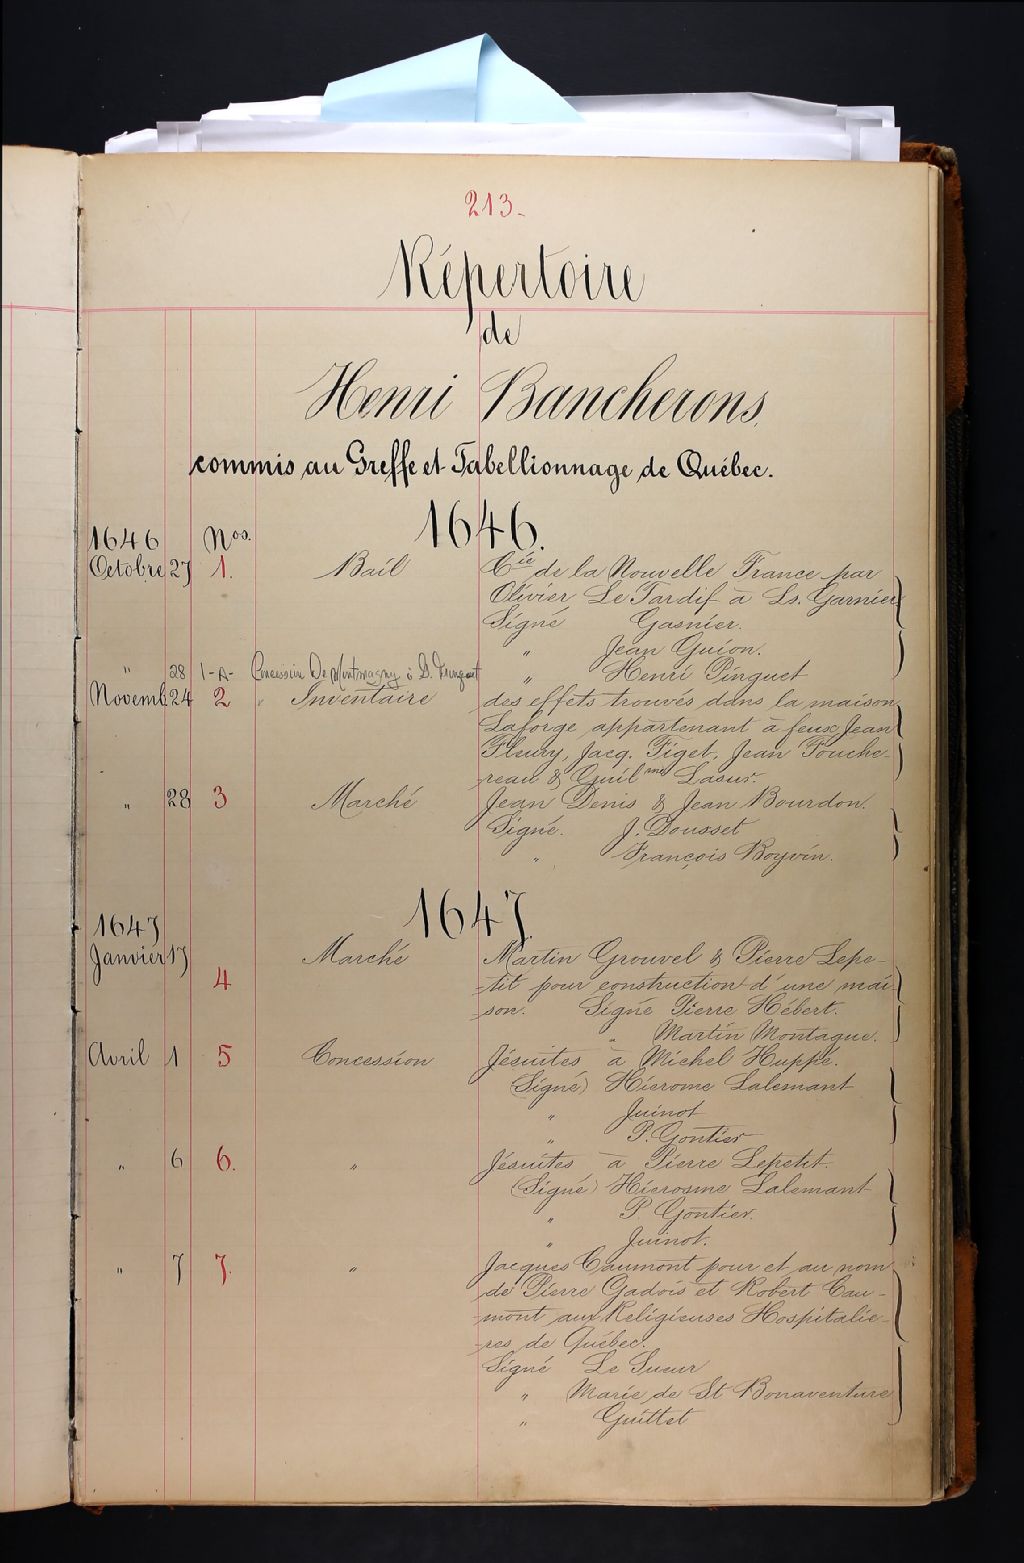 213-
Répertoire
de
Henri Bancherons,
commis au Greffe et Tabellionnage de Québec.
1646.
1646 Nos.
Octobre 27 1. Bail Cie de la Nouvelle France par
Olivier Le Tardif à Ls. Garnier
Signé Gasnier.
" Jean Guion.
" 28 1-A- Concession De Montmagny à " Henri Pinguet
Novemb 24 2 " Inventaire des effets trouvés dans la maison
Laforge appartenant à feux Jean
Fleury, Jacq. Figet, Jean Fouche-
reau & Guilme Lasur.
" 28 3 Marché Jean Denis & Jean Bourdon.
Signé. J. Dousset
" François Boyvin.
1647.
1647
Janvier 17 Marché Martin Grouvel & Pierre Lepe-
4 tit pour construction d'une mai-
son. Signé Pierre Hébert.
" Martin Montague.
Avril 1 5 Concession Jésuites à Michel Huppé.
(Signé) Hierome Lalemant
" Juinot
" P. Gontier
" 6 6. " Jésuites à Pierre Lepetit.
(Signé) Hierosme Lalemant
" P Gontier.
" Juinot.
" 7 7. " Jacques Caumont pour et au nom
de Pierre Gadois et Robert Cau-
mont aux Religieuses Hospitaliè-
res de Québec.
Signé Le Sueur
" Marie de St Bonaventure
" Guittet